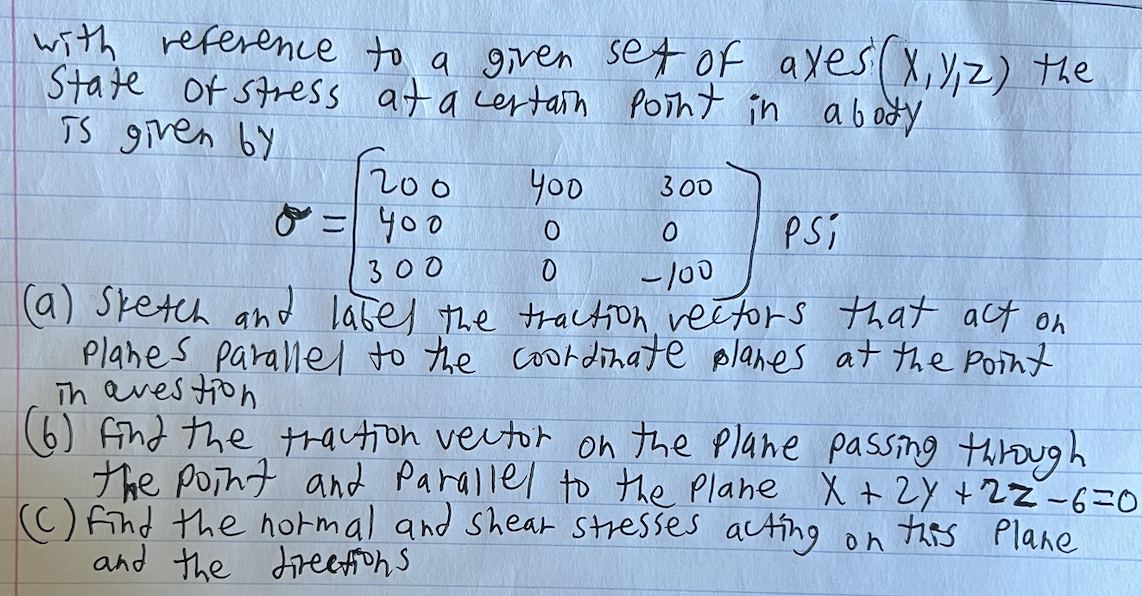 with reference to a given set of axes (X,Y,Z) the
State of stress at a certain Point in a body
is given by
σ = [200 400 300
400 0 0
300 0 -100] PSi
(a) Sketch and label the traction vectors that act on
planes parallel to the coordinate planes at the point
in question
(b) find the traction vector on the plane passing through
the point and Parallel to the Plane X + 2Y + 2Z - 6 = 0
(C) find the normal and shear stresses acting on this Plane
and the directions